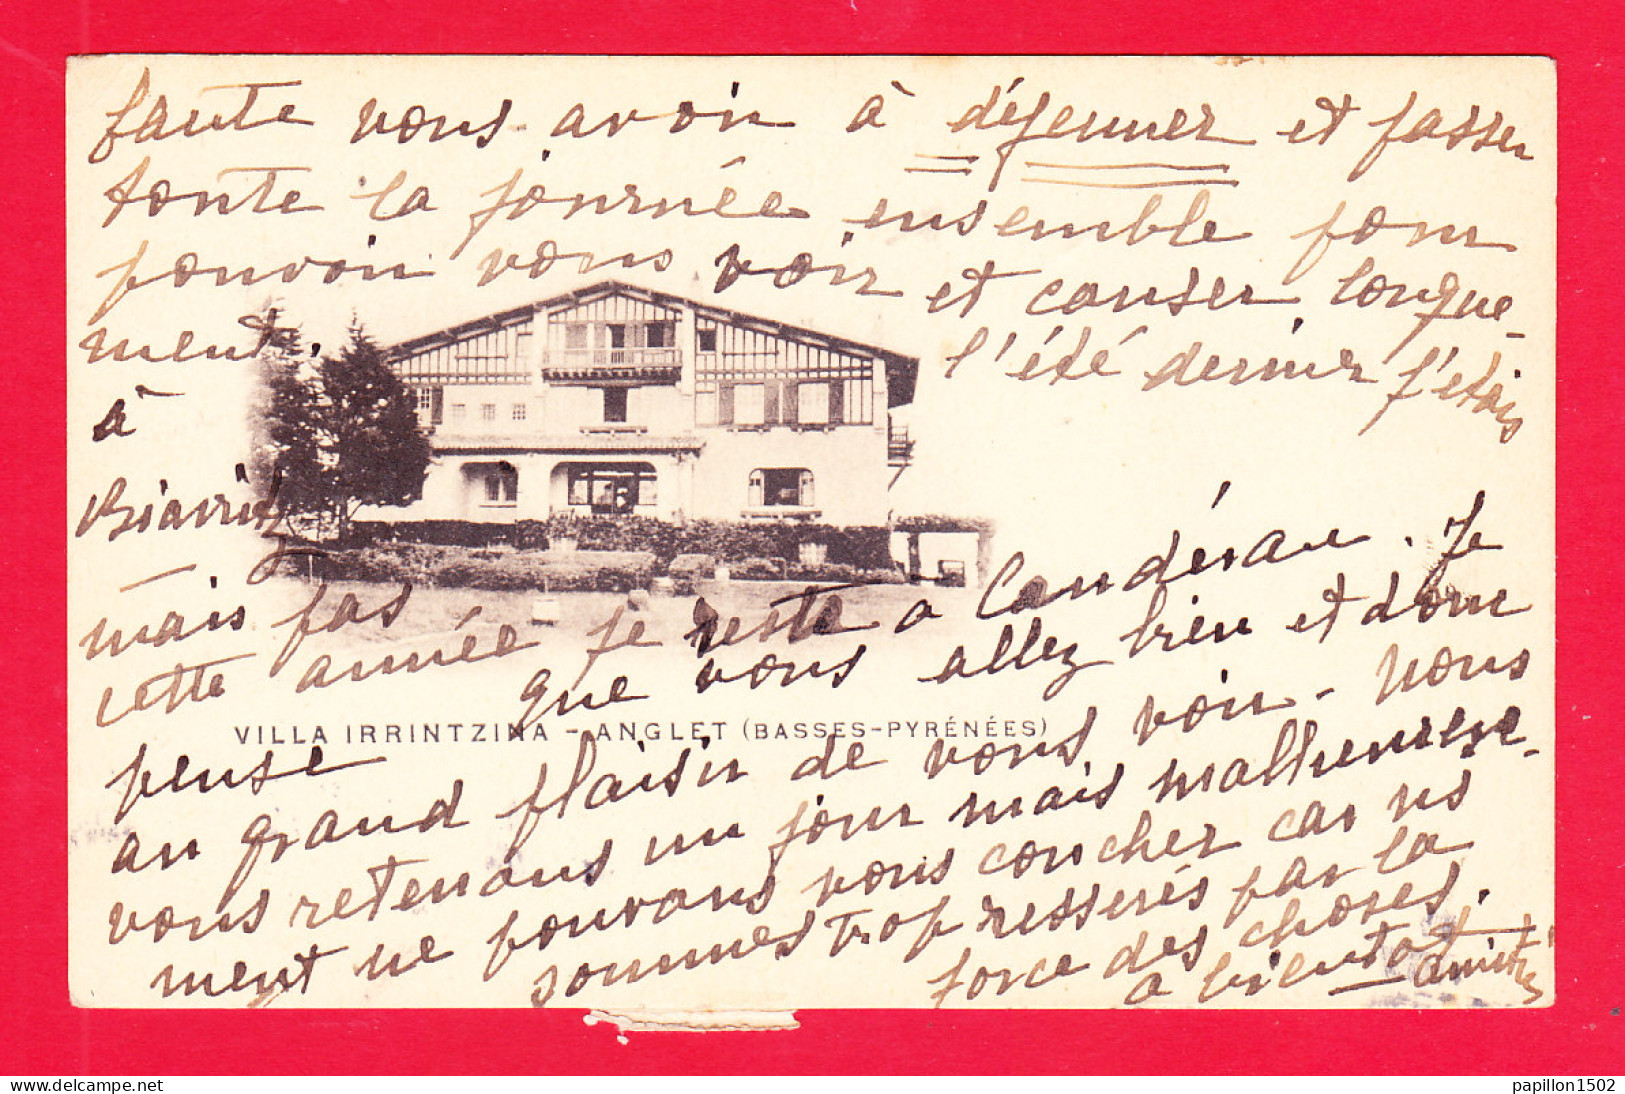 faute vous avoir à déjeuner et passer
toute la journée ensemble pour
pouvoir vous voir et causer longue-
ment. l'été dernier j'étais
à
Biarritz
mais pas
cette année je reste à Caudéran. Je
pense que vous allez bien et donc
au grand plaisir de vous voir - Nous
vous retenons un jour mais malheureuse-
ment ne pouvons vous coucher car ns
sommes trop resserrés par la
force des choses.
a bientot amitiés
VILLA IRRINTZINA - ANGLET (BASSES-PYRÉNÉES)
papillon1502